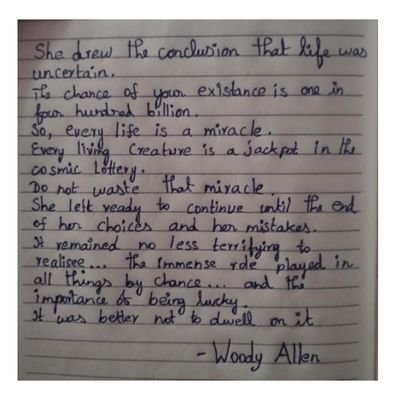 She drew the conclusion that life was
uncertain.
The chance of your existance is one in
four hundred billion.
So, every life is a miracle.
Every living creature is a jackpot in the
cosmic lottery.
Do not waste that miracle.
She left ready to continue until the end
of her choices and her mistakes.
It remained no less terrifying to
realisee... the immense role played in
all things by chance... and the
importance of being lucky.
It was better not to dwell on it
- Woody Allen